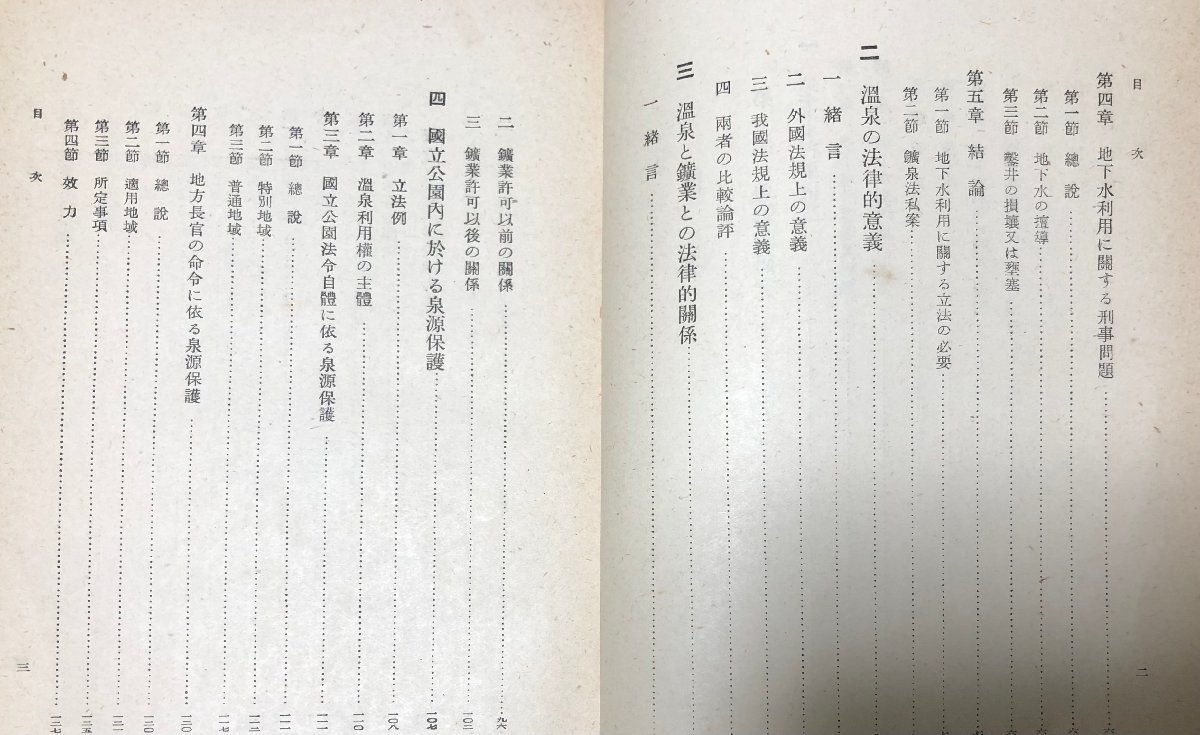 目次
第四章 地下水利用に關する刑事問題
第一節 總說
第二節 地下水の擅導
第三節 鑿井の損壞又は壅塞
第五章 結論
第一節 地下水利用に關する立法の必要
第二節 鑛泉法私案
二 溫泉の法律的意義
一 緒言
二 外國法規上の意義
三 我國法規上の意義
四 兩者の比較論評
三 溫泉と鑛業との法律的關係
一 緒言
二
二 鑛業許可以前の關係 九六
三 鑛業許可以後の關係
四 國立公園內に於ける泉源保護 一〇七
第一章 立法例 一〇八
第二章 溫泉利用權の主體 一一〇
第三章 國立公園法令自體に依る泉源保護 一一一
第一節 總說 一一一
第二節 特別地域 一一二
第三節 普通地域 一一七
第四章 地方長官の命令に依る泉源保護 一二〇
第一節 總說 一二〇
第二節 適用地域 一二一
第三節 所定事項 一二五
第四節 效力 一二七
目次
三